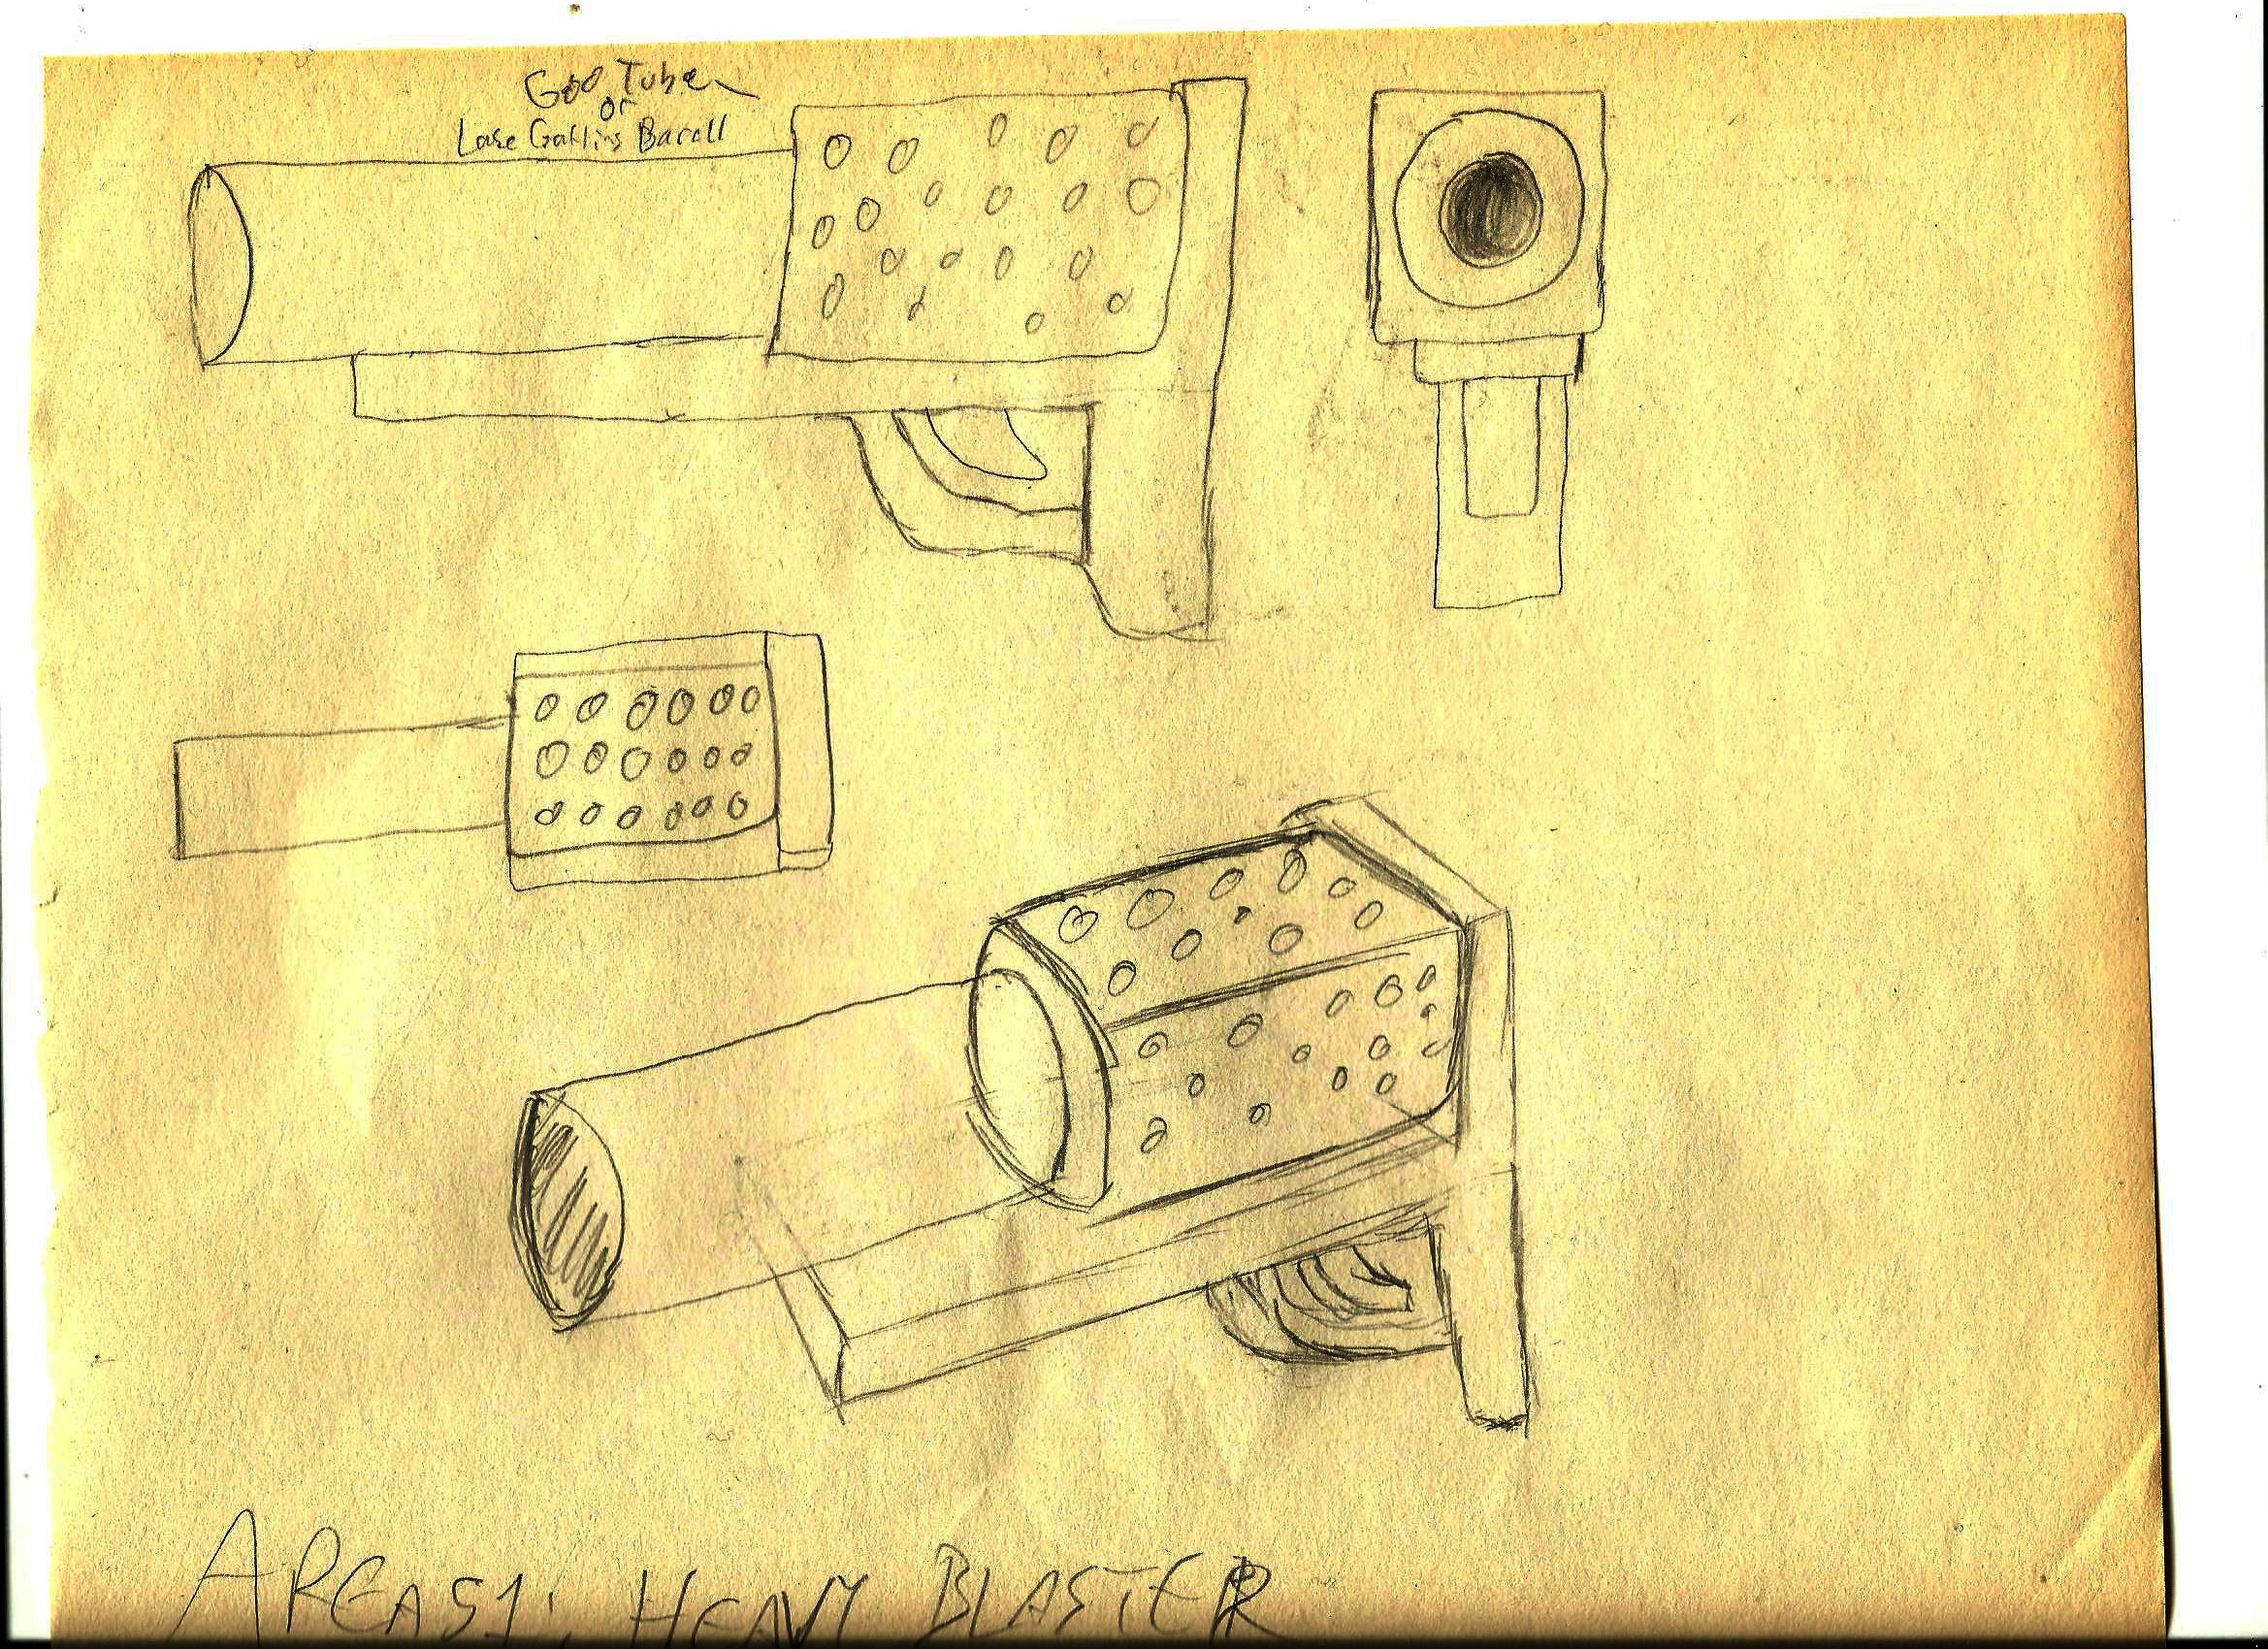 Goo Tube
or
Lase Gatling Barell
AREA51: HEAVY BLASTER